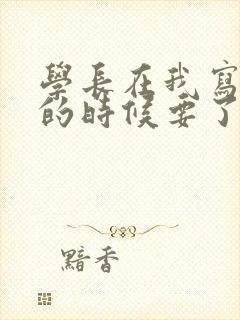 學長在我寫
的時候要了
黯香